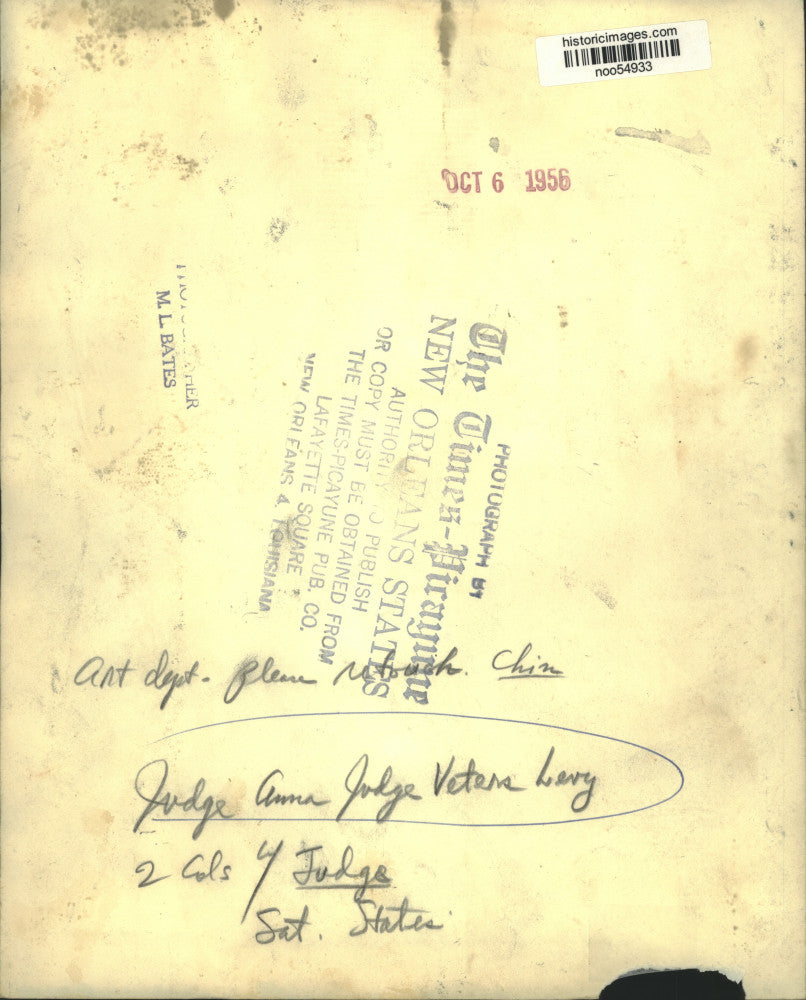 historicimages.com
noo54933
OCT 6 1956
M. L. BATES
PHOTOGRAPH BY
The Times-Picayune
NEW ORLEANS STATES
AUTHORITY TO PUBLISH
OR COPY MUST BE OBTAINED FROM
THE TIMES-PICAYUNE PUB. CO.
LAFAYETTE SQUARE
NEW ORLEANS 4, LOUISIANA
Art dept. please retouch. Chin
Judge Anna Judge Veters Levy
2 Cols 4 Judge
Sat. States